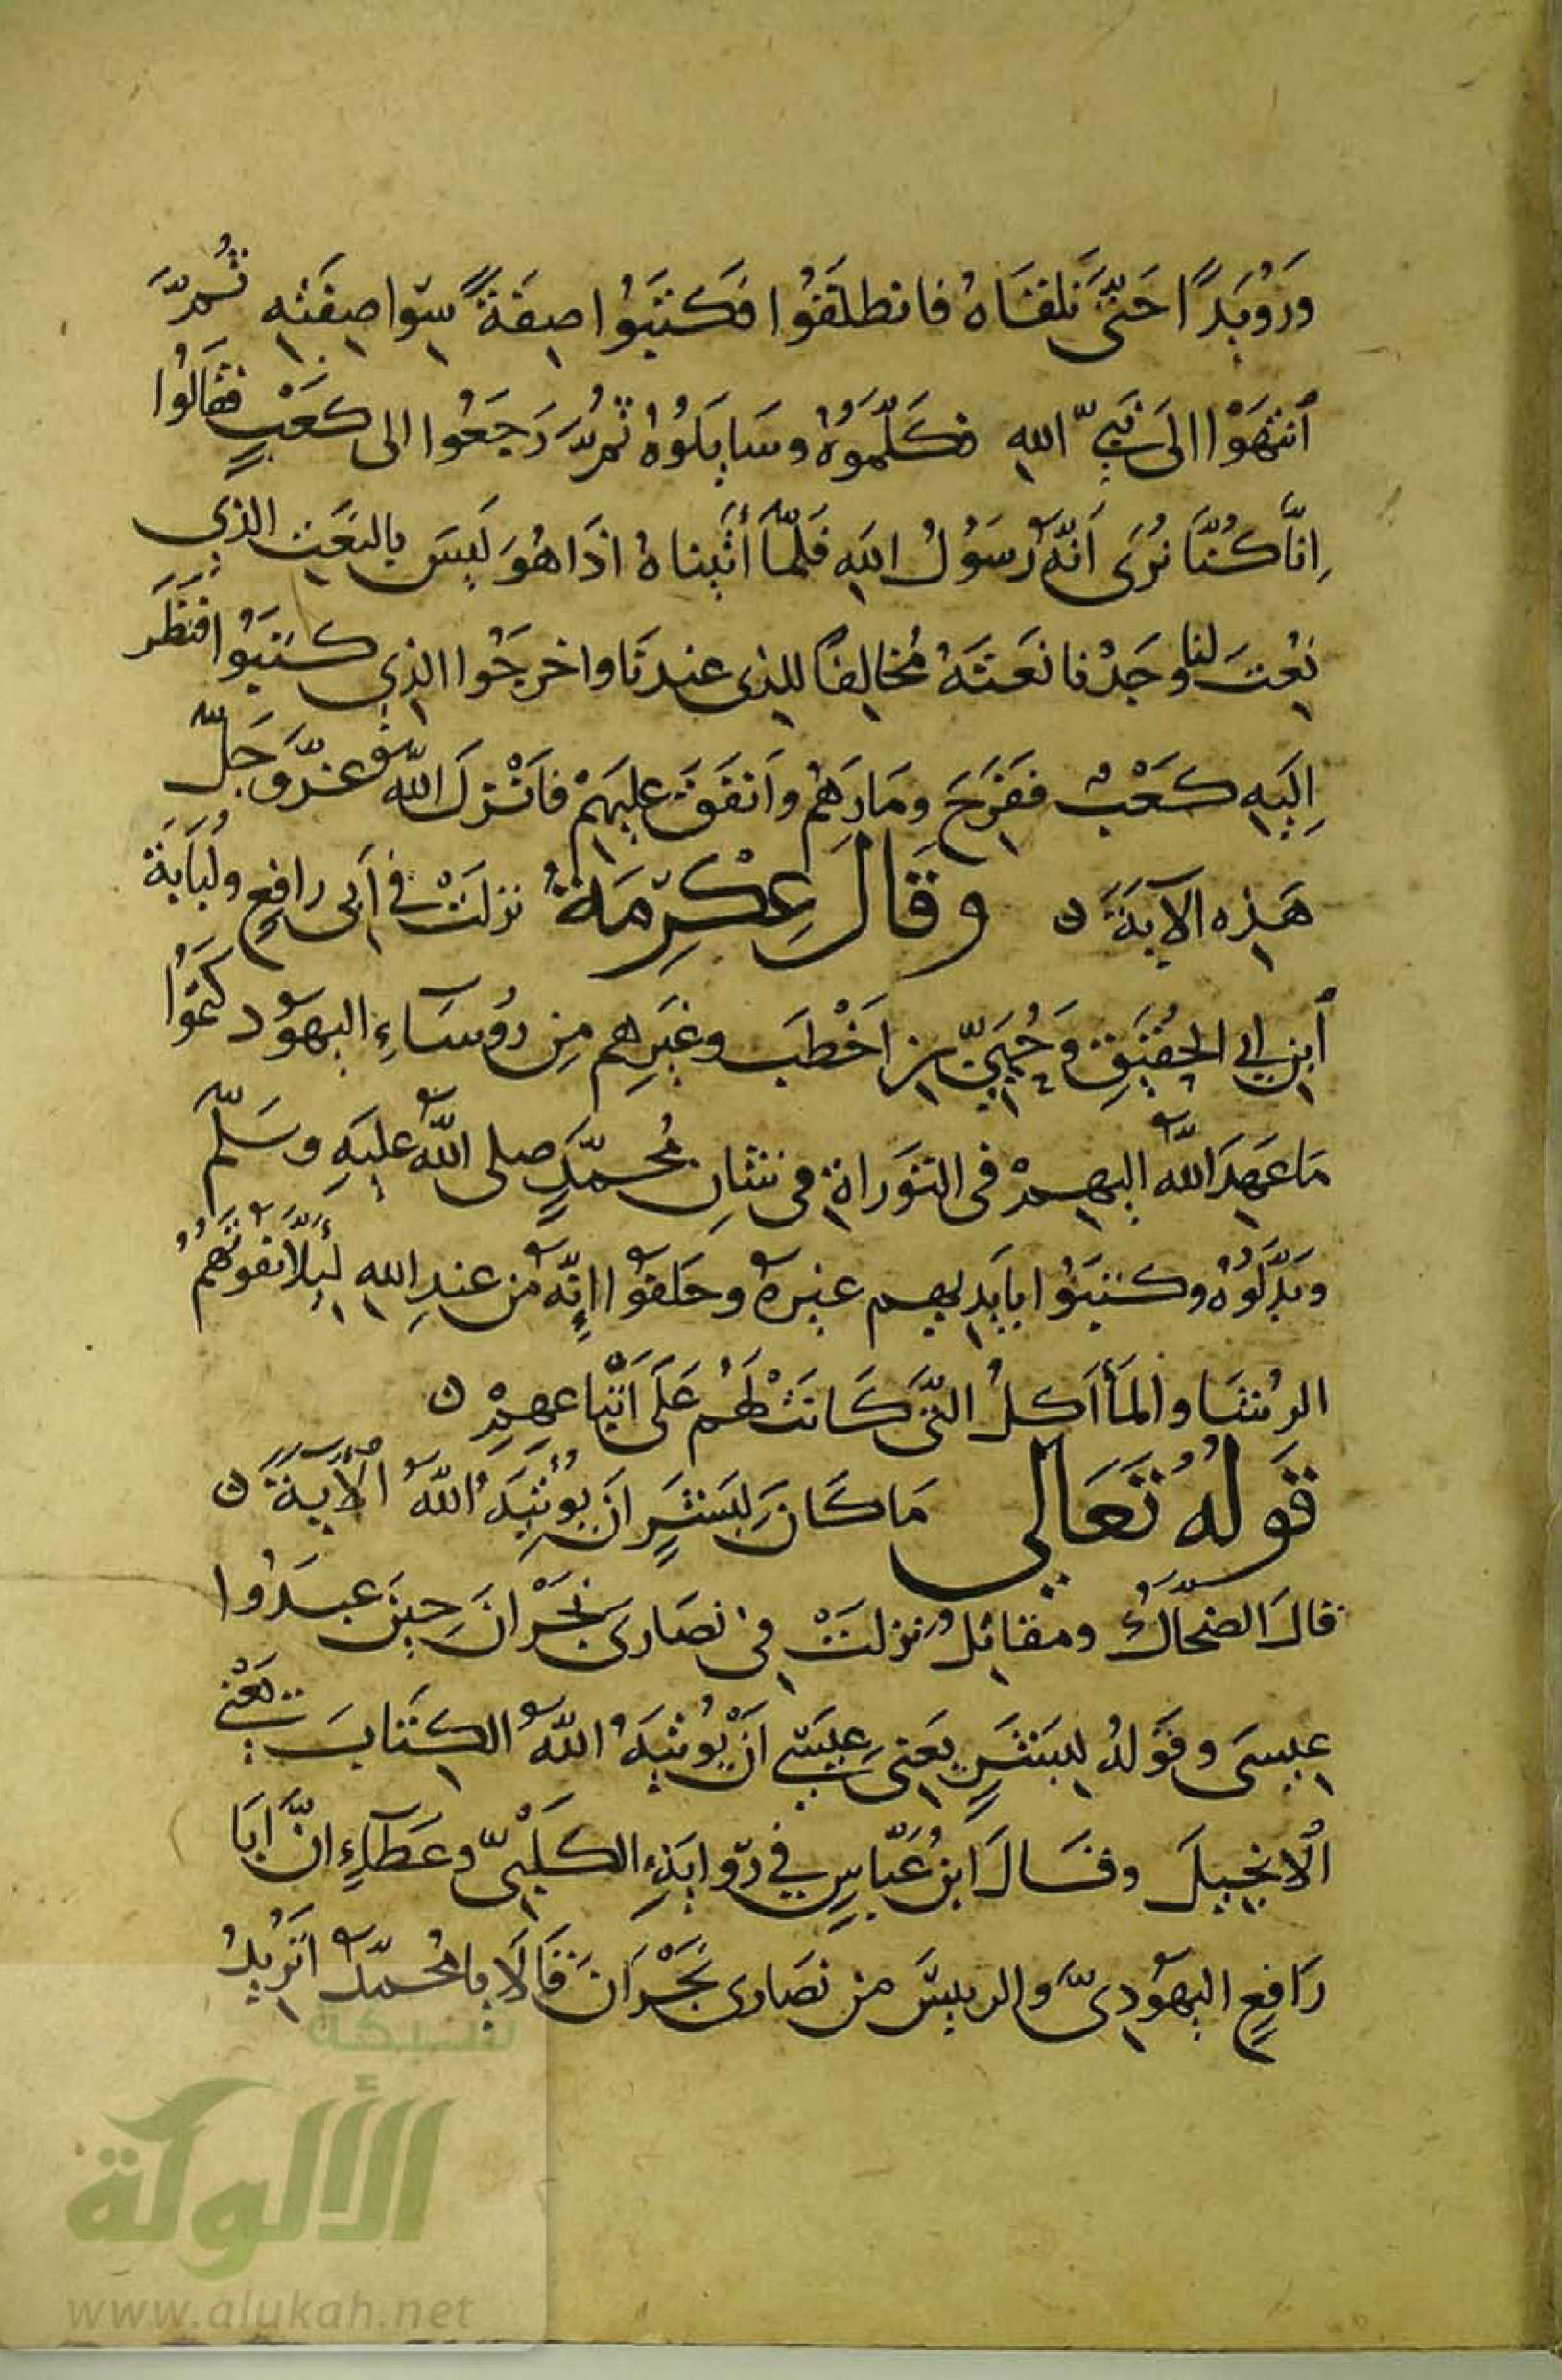 وَرُوَيدًا حَتّى نَلقَاهُ فانطلقَوُا فَكَتَبَوُا صِفَةً سِوا صِفَتِهِ ثُمَّ
ٱنتهَوْا الَى نَبيّ اللهِ فَكَلَّمَوُهُ وسَايَلوُهُ ثُمَّ رَجَعُوا الى كَعْبٍ فقَالوُا
اِنَّا كُنَّا نُرَى اَنّهُ رَسَوُلُ اللهِ فَلَمَّا أتَيناهُ اذَا هُوَ لَيسَ بالنَعَتِ الذِي
نُعِتَ لنا وجَدْنا نَعَتَهُ مُخالِفًا للذِى عندنَا واخرجَوُا الذِي كتبَوُا فنَظَر
اِلَيهِ كَعْبٌ ففَرَحَ ومَارَهُم وَانفَقَ عليهَمْ فَاَنْزلَ اللهُ عزَّ وَجَلّ
هَذِه الآيَةَ ٥ وقَالَ عِكْرِمَةُ نزلَتْ في أَبى رافِعٍ ولُبَابَةَ
ٱبنِ ابي الحُقَيَقِ وَحُيَيّ بنِ اَخْطَبَ وغَيرِهم مِن رُوسَآءِ اليهوُد كتمَوُا
مَا عَهِدَ اللهُ اليهِمْ فى التوَراةِ في شانِ مُحمّدٍ صلى اللهُ عليَهِ وسَلّم
وبَدَّلَوُهُ وكتبَوُا بايَدِيهِم غيرهُ وحَلفوُا اِنّهُ من عندِ اللهِ لِئَلاَّ تفوتَهُمُ
الرُشَا والمَأاَكِلُ التّى كَانتْ لَهُم عَلَى اَتْبَاعهِمْ ٥
قَولهُ تعَالى مَا كَانَ لِبَشَرٍ ان يُوْتِيَهُ اللهُ الآيَةَ ٥
قالَ الضحَّاكُ ومقاتِلُ نزلتْ في نصَارى نَجْرَانَ حِينَ عبدَوُا
عِيسَى وقَولهُ لِبَشَرٍ يعَنِى عِيسَى اَنْ يُوتِيَهُ اللهُ الكتَابَ يَعْني
الْانجِيلَ وقَالَ اَبنُ عَبّاسٍ في رّوايَةِ الكَلْبيّ وعَطَآءٍ اِنَّ اَبَا
رَافِعٍ اليهَودِىَّ والرييسَّ من نصَارى نَجَرانَ قَالَا يا مُحمّدُ اَتُرِيدُ
شبكة
الألوكة
www.alukah.net